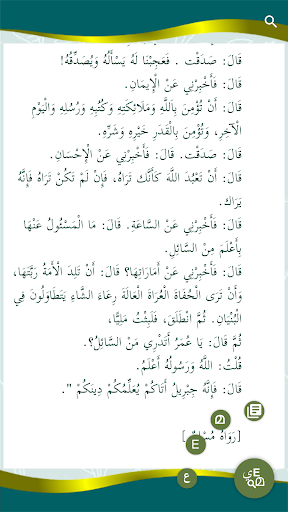 قَالَ: صَدَقْت . فَعَجِبْنَا لَهُ يَسْأَلُهُ وَيُصَدِّقُهُ!
قَالَ: فَأَخْبِرْنِي عَنْ الْإِيمَانِ.
قَالَ: أَنْ تُؤْمِنَ بِاَللَّهِ وَمَلَائِكَتِهِ وَكُتُبِهِ وَرُسُلِهِ وَالْيَوْمِ
الْآخِرِ، وَتُؤْمِنَ بِالْقَدَرِ خَيْرِهِ وَشَرِّهِ.
قَالَ: صَدَقْت. قَالَ: فَأَخْبِرْنِي عَنْ الْإِحْسَانِ.
قَالَ: أَنْ تَعْبُدَ اللَّهَ كَأَنَّك تَرَاهُ، فَإِنْ لَمْ تَكُنْ تَرَاهُ فَإِنَّهُ
يَرَاك.
قَالَ: فَأَخْبِرْنِي عَنْ السَّاعَةِ. قَالَ: مَا الْمَسْئُولُ عَنْهَا
بِأَعْلَمَ مِنْ السَّائِلِ.
قَالَ: فَأَخْبِرْنِي عَنْ أَمَارَاتِهَا؟ قَالَ: أَنْ تَلِدَ الْأَمَةُ رَبَّتَهَا،
وَأَنْ تَرَى الْحُفَاةَ الْعُرَاةَ الْعَالَةَ رِعَاءَ الشَّاءِ يَتَطَاوَلُونَ فِي
الْبُنْيَانِ. ثُمَّ انْطَلَقَ، فَلَبِثْتُ مَلِيًّا،
ثُمَّ قَالَ: يَا عُمَرُ أَتَدْرِي مَنْ السَّائِلُ؟.
قُلْتُ: اللَّهُ وَرَسُولُهُ أَعْلَمُ.
قَالَ: فَإِنَّهُ جِبْرِيلُ أَتَاكُمْ يُعَلِّمُكُمْ دِينَكُمْ ".
മ
[رَوَاهُ مُسْلِمٌ]
E
ع